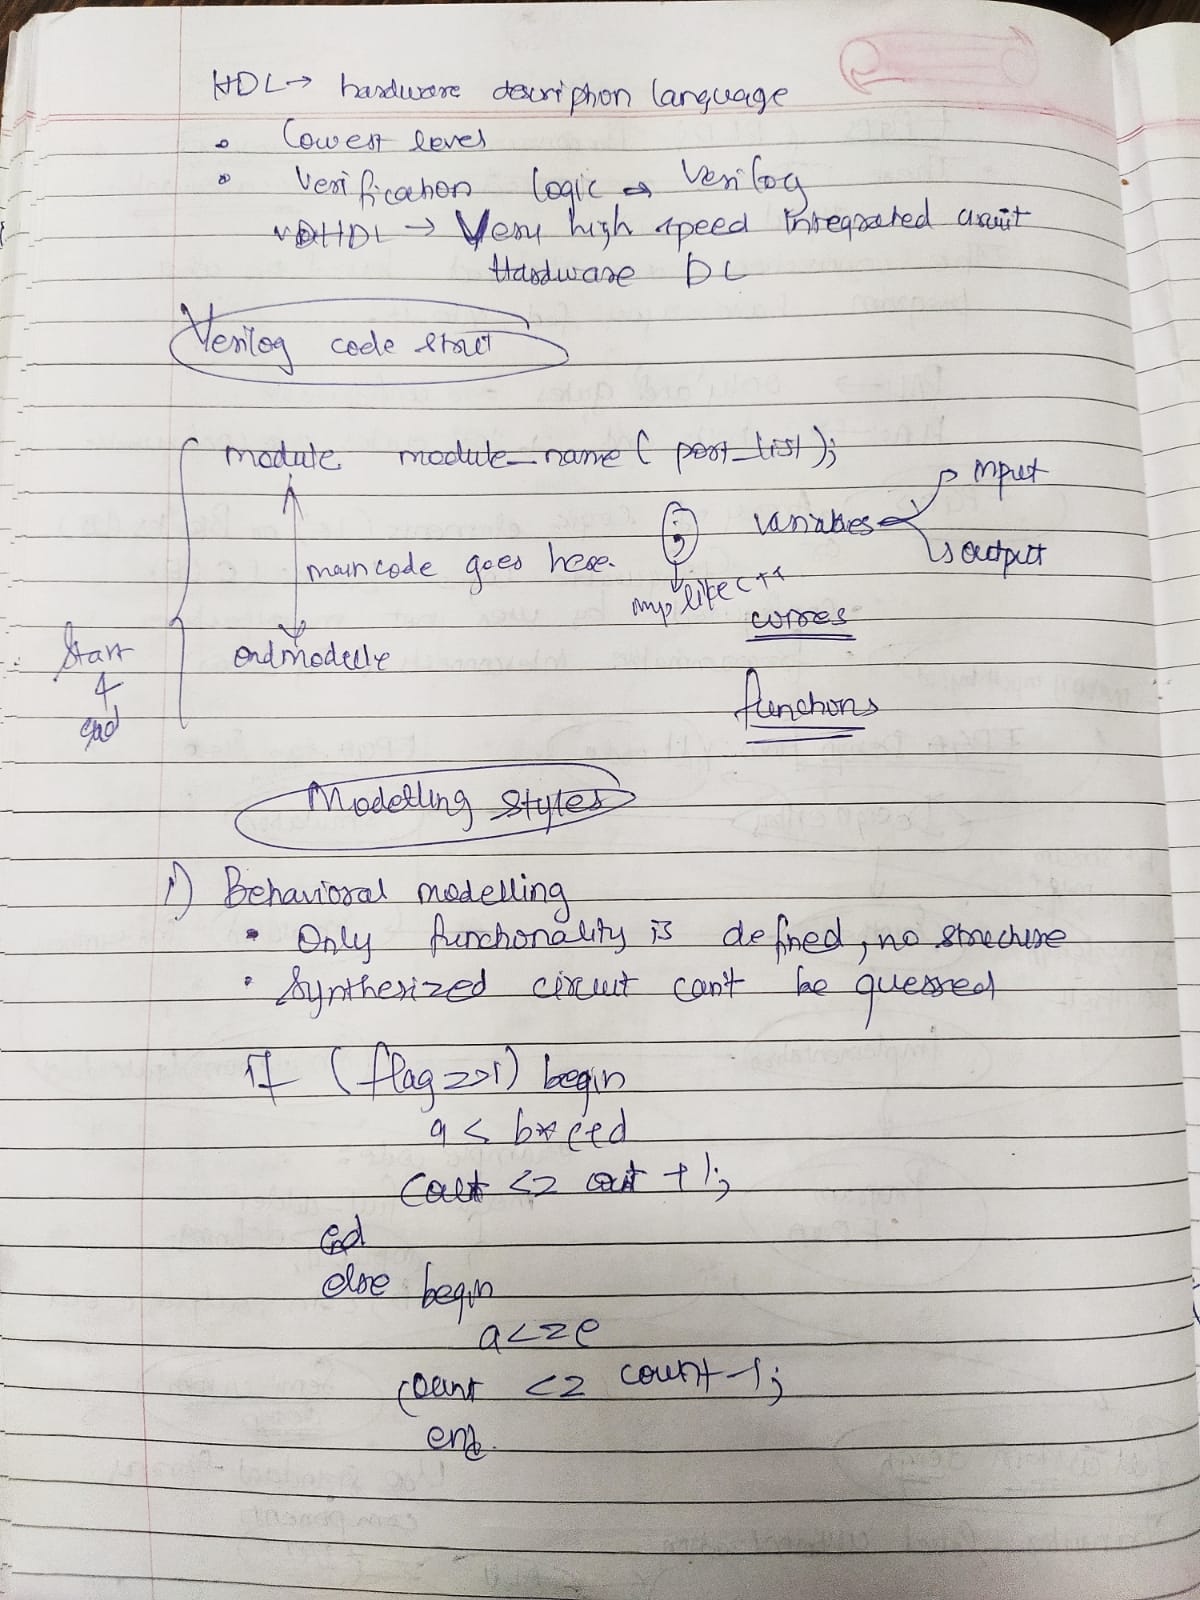 HDL → hardware description language
• Lowest level
• Verification logic → Verilog
VHDL → Very high speed integrated circuit
Hardware DL
Verilog code struct
module module_name ( port_list );
input
; variables
output
main code goes here.
imp like C++
wires
endmodule
Start
&
end
functions
Modelling styles
1) Behavioral modelling
• Only functionality is defined, no structure
• Synthesized circuit can't be guessed
if (flag == 1) begin
a <
count <= count + 1;
end
else begin
a <= e
count <= count - 1;
end.